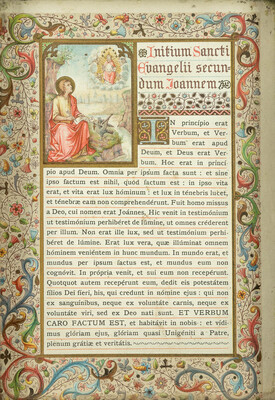 Initium Sancti
Evangelii secun-
dum Joannem
IN princípio erat
Verbum, et Ver-
bum erat apud
Deum, et Deus erat Ver-
bum. Hoc erat in princí-
pio apud Deum. Omnia per ipsum facta sunt : et sine
ipso factum est nihil, quod factum est : in ipso vita
erat, et vita erat lux hóminum : et lux in ténebris lucet,
et ténebræ eam non comprehendérunt. Fuit homo missus
a Deo, cui nomen erat Joánnes, Hic venit in testimónium
ut testimónium perhibéret de lúmine, ut omnes créderent
per illum. Non erat ille lux, sed ut testimónium perhi-
béret de lúmine. Erat lux vera, quæ illúminat omnem
hóminem veniéntem in hunc mundum. In mundo erat, et
mundus per ipsum factus est, et mundus eum non
cognóvit. In própria venit, et sui eum non recepérunt.
Quotquot autem recepérunt eum, dedit eis potestátem
fílios Dei fíeri, his, qui credunt in nómine ejus : qui non
ex sanguínibus, neque ex voluntáte carnis, neque ex
voluntáte viri, sed ex Deo nati sunt. ET VERBUM
CARO FACTUM EST, et habitávit in nobis : et vídi-
mus glóriam ejus, glóriam quasi Unigéniti a Patre,
plenum grátiæ et veritátis.